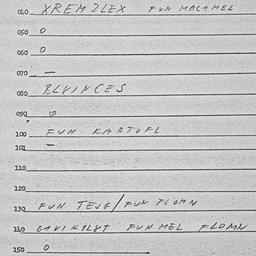 010 XREMZLEX FUN MACAMEL
050 O
060 O
070 —
080 BLEINCES
090 O
100 FUN KARTOFL
101 —
110
120
130 FUN TEJG/FUN FLOMN
140 FUN MEL FLOMN
150 O